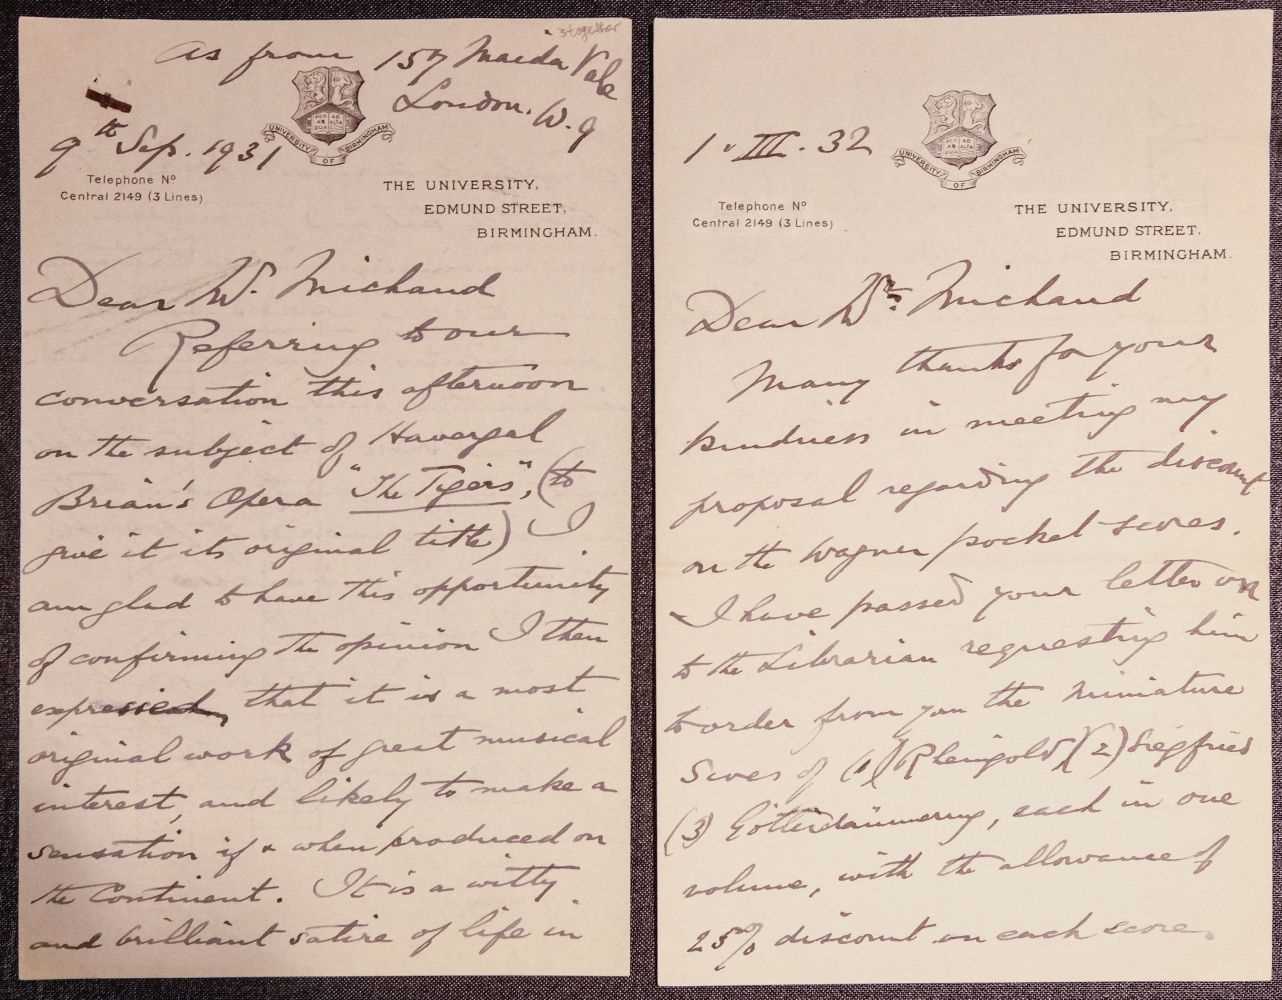 3 together
As from 157 Maida Vale
London. W. 9
9th Sep. 1931
PER AD
AR ALTA
DUA
UNIVERSITY OF BIRMINGHAM
Telephone No
Central 2149 (3 Lines)
THE UNIVERSITY,
EDMUND STREET,
BIRMINGHAM.
Dear Mr. Michaud
Referring to our
conversation this afternoon
on the subject of Havergal
Brian's Opera "The Tigers", (to
give it its original title) I
am glad to have this opportunity
of confirming the opinion I then
expressed, that it is a most
original work of great musical
interest, and likely to make a
sensation if & when produced on
the Continent. It is a witty
and brilliant satire of life in
1. III. 32
PER AD
AR ALTA
DUA
UNIVERSITY OF BIRMINGHAM
Telephone No
Central 2149 (3 Lines)
THE UNIVERSITY,
EDMUND STREET,
BIRMINGHAM.
Dear Mr. Michaud
Many thanks for your
kindness in meeting my
proposal regarding the discount
on the Wagner pocket-scores.
I have passed your letter on
to the Librarian requesting him
to order from you the miniature
Scores of (1) Rheingold, (2) Siegfried
(3) Götterdämmerung, each in one
volume, with the allowance of
25% discount on each score.